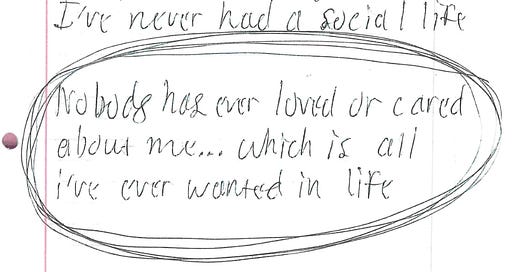 I've never had a social life
Nobody has ever loved or cared
about me... which is all
i've ever wanted in life